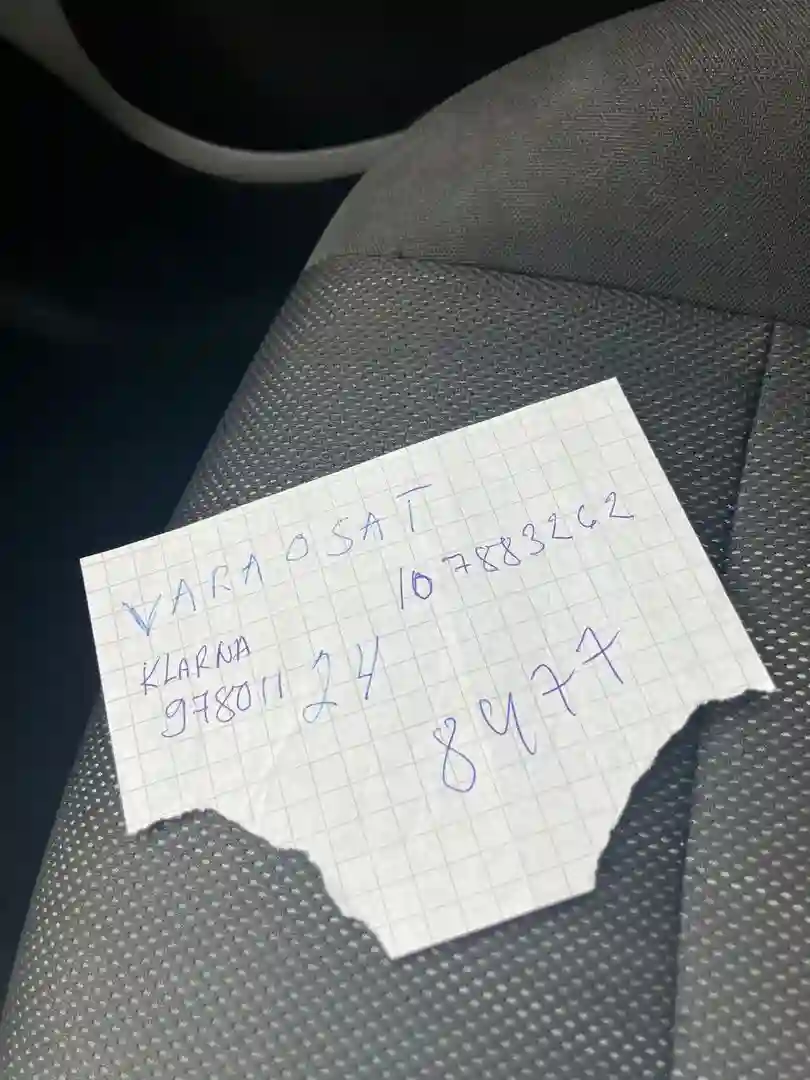 VARAOSAT
107883262
KLARNA
978011 24
8477